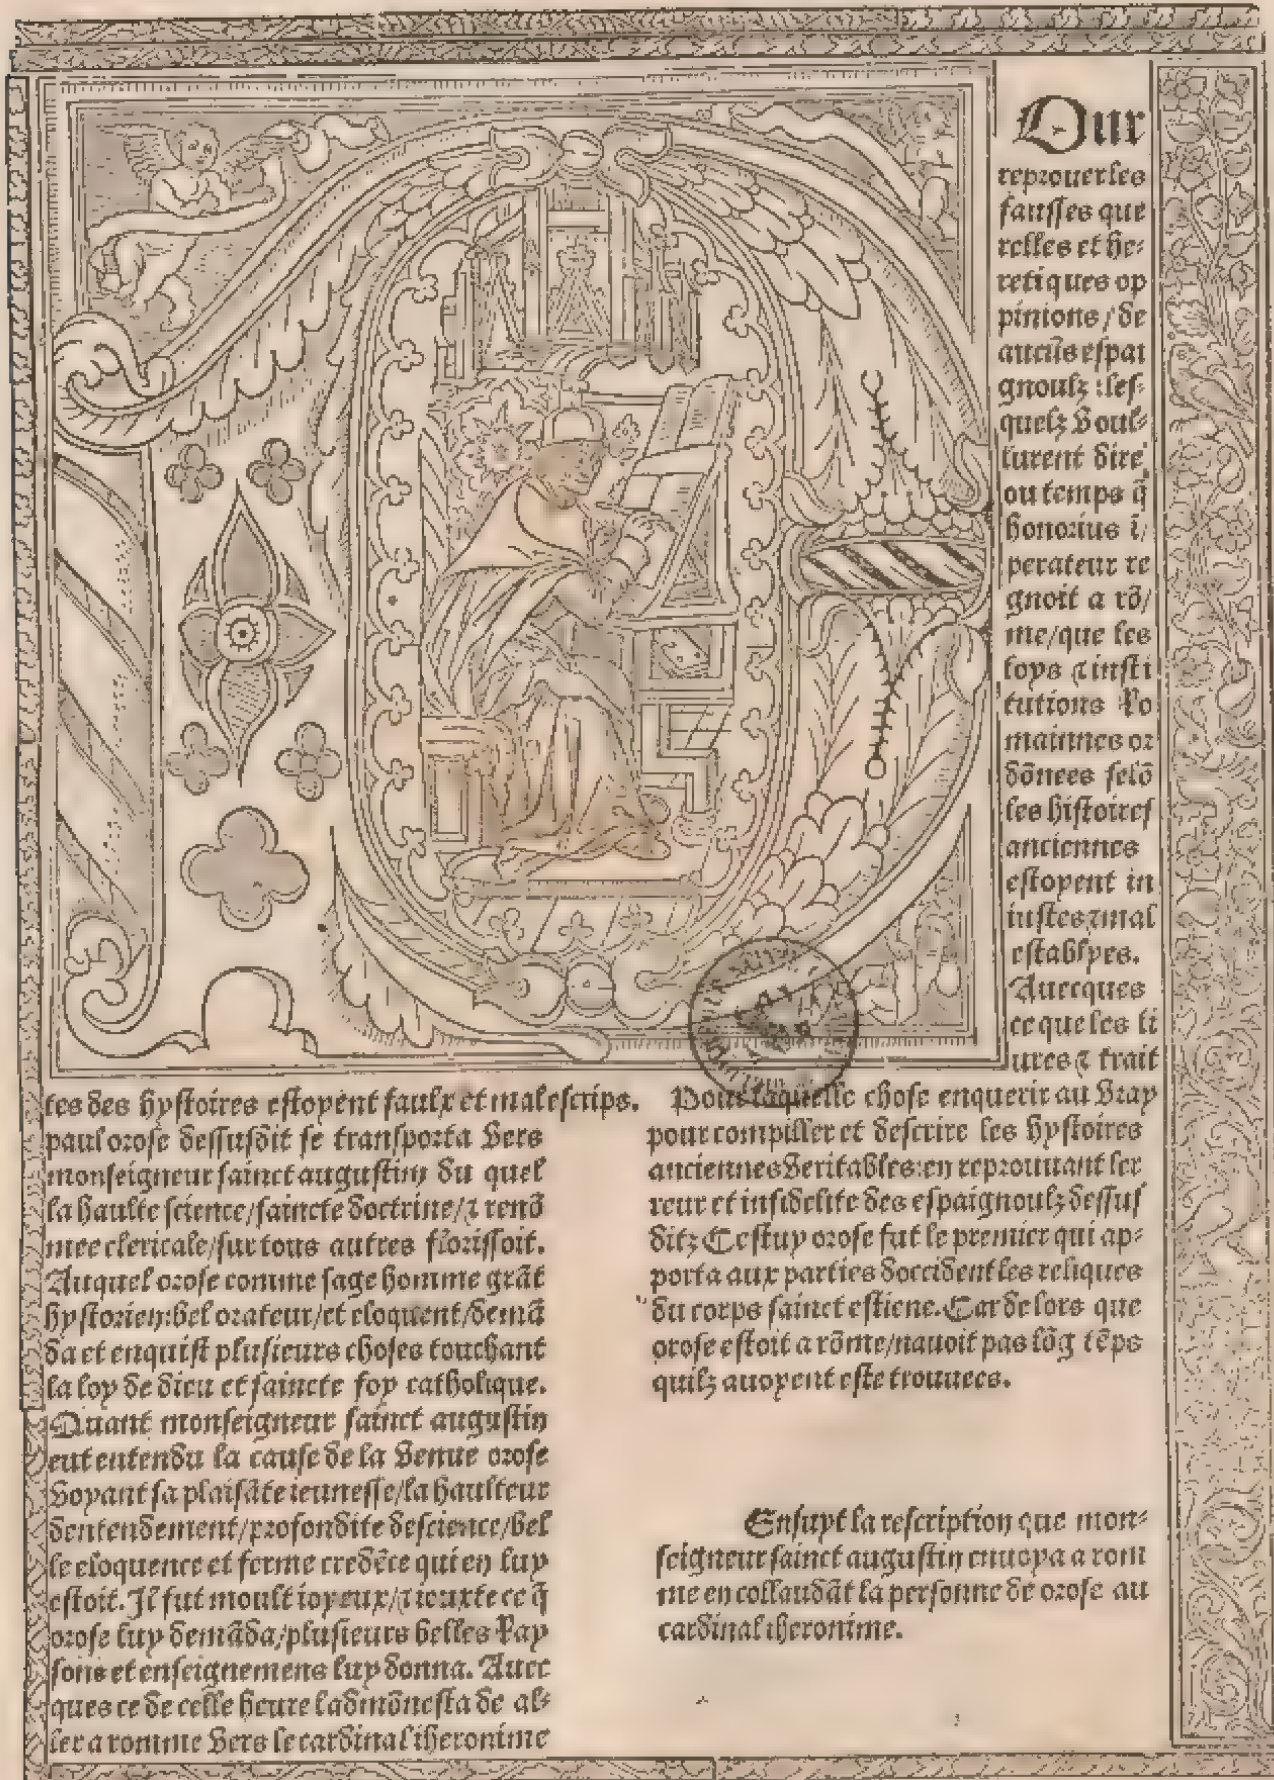 Our
reprouerles
faulses que
relles et he-
retiques op
pinions/de
aucũs espai
gnoulz:les-
quelz voul-
lurent dire
ou temps q̃
honorius i/
perateur re
gnoit a rõ/
me/que les
loys ⁊ insti
tutions Ro
maines or
dõnees selõ
les histoires
anciennes
estoyent in
iustes⁊mal
establyes.
Auecques
ce que les li
ures⁊ trait
tes des hystoires estoyent faulx et mal escrips.
paul orose dessusdit se transporta vers
monseigneur sainct augustin du quel
la haulte science/saincte doctrine/⁊ renõ
mee clericale/sur tous autres florissoit.
Auquel orose comme sage homme grãt
hystorien:bel orateur/et eloquent/demã
da et enquist plusieurs choses touchant
la loy de dieu et saincte foy catholique.
Quant monseigneur sainct augustin
eut entendu la cause de la venue orose
voyant sa plaisãte ieunesse/la haulteur
dentendement/profondite descience/bel
le eloquence et ferme credẽce qui en luy
estoit. Il fut moult ioyeux/⁊ iouxte ce q̃
orose luy demãda/plusieurs belles Ray
sons et enseignemens luy donna. Auec
ques ce de celle heure ladmõnesta de al-
ler a romme vers le cardinal iheronime
Pour laquelle chose enquerir au vray
pour compiller et descrire les hystoires
anciennes veritables:en reprouuant ler
reur et infidelite des espaignoulz dessus
ditz Cestuy orose fut le premier qui ap-
porta aux parties doccident les reliques
du corps sainct estiene. Car de lors que
orose estoit a rõme/nauoit pas lõg tẽps
quilz auoyent este trouuees.
Ensuyt la rescription que mon-
seigneur sainct augustin enuoya a rom
me en collaudãt la personne de orose au
cardinal iheronime.